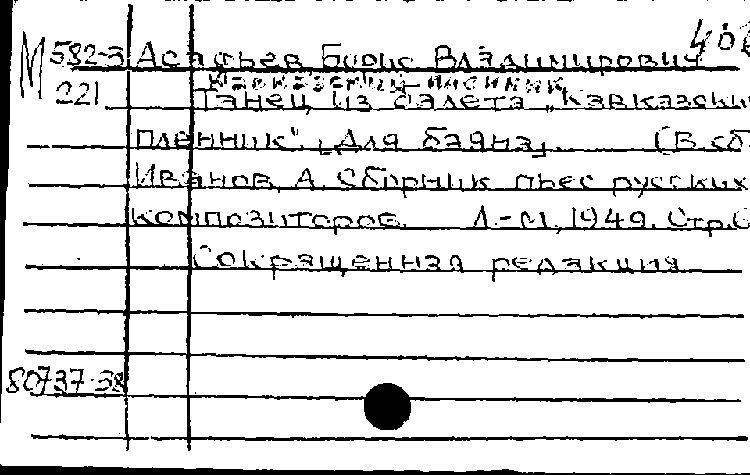 М 582-3 Асафьев Борис Владимирович
Кавказский пленник
221 Танец из балета „Кавказский
пленник". [Для баяна]. (В сб.
Иванов, А. Сборник пьес русских
композиторов. Л.-М., 1949. Стр.
Сокращенная редакция
80737-38